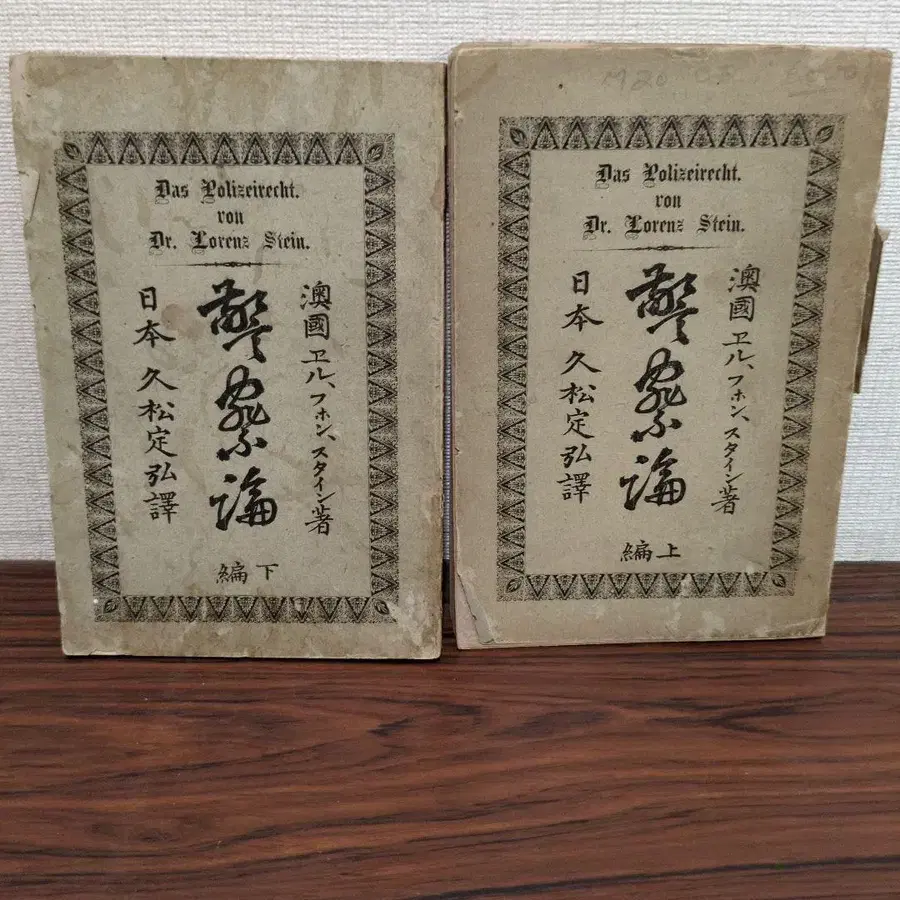 M20
Das Polizeirecht.
von
Dr. Lorenz Stein.
澳國 ヱル、フホン、スタイン著
警察論
日本 久松定弘譯
上編
Das Polizeirecht.
von
Dr. Lorenz Stein.
澳國 ヱル、フホン、スタイン著
警察論
日本 久松定弘譯
下編